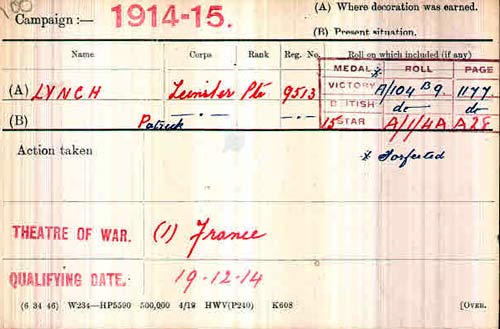 100
Campaign :— 1914-15.
(A) Where decoration was earned.
(B) Present situation.
Name Corps Rank Reg. No. Roll on which included (if any)
MEDAL * ROLL PAGE
(A) LYNCH Leinster Pte 9513 VICTORY A/104 B9. 1177.
BRITISH do do
(B) Patrick —·— —·— 15 STAR A/1/4A A28
Action taken * Forfeited
THEATRE OF WAR. (1) France
QUALIFYING DATE. 19-12-14
(6 34 46) W234—HP5590 500,000 4/19 HWV(P240) K608 [OVER.